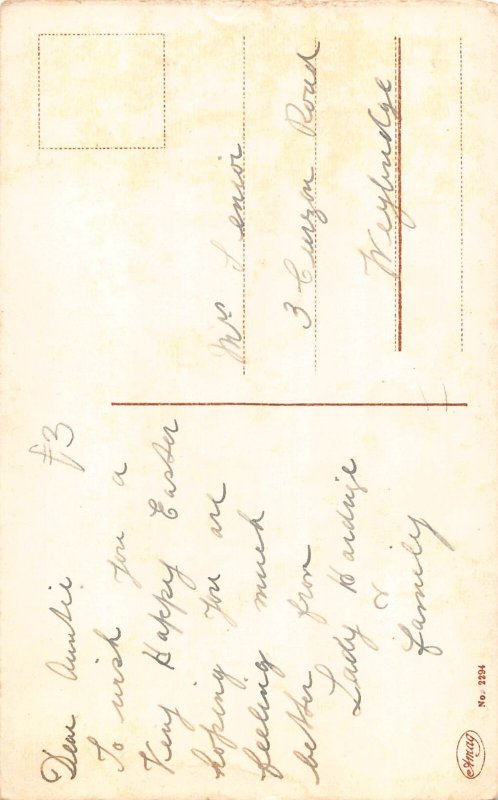 Dear Auntie £3
To wish you a
Very Happy Easter
hoping you are
feeling much
better from
Lady Hardinge
&
family
Mrs Senior
3 Curzon Road
Weybridge
Amag
No. 2294